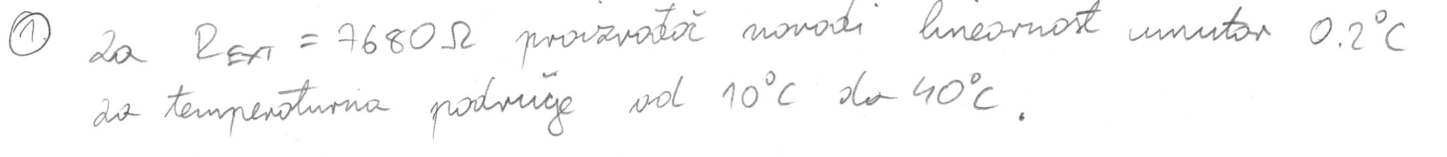 ① Za R_EXT = 7680Ω proizvođač navodi linearnost unutar 0.2°C
za temperaturna područje od 10°C do 40°C.